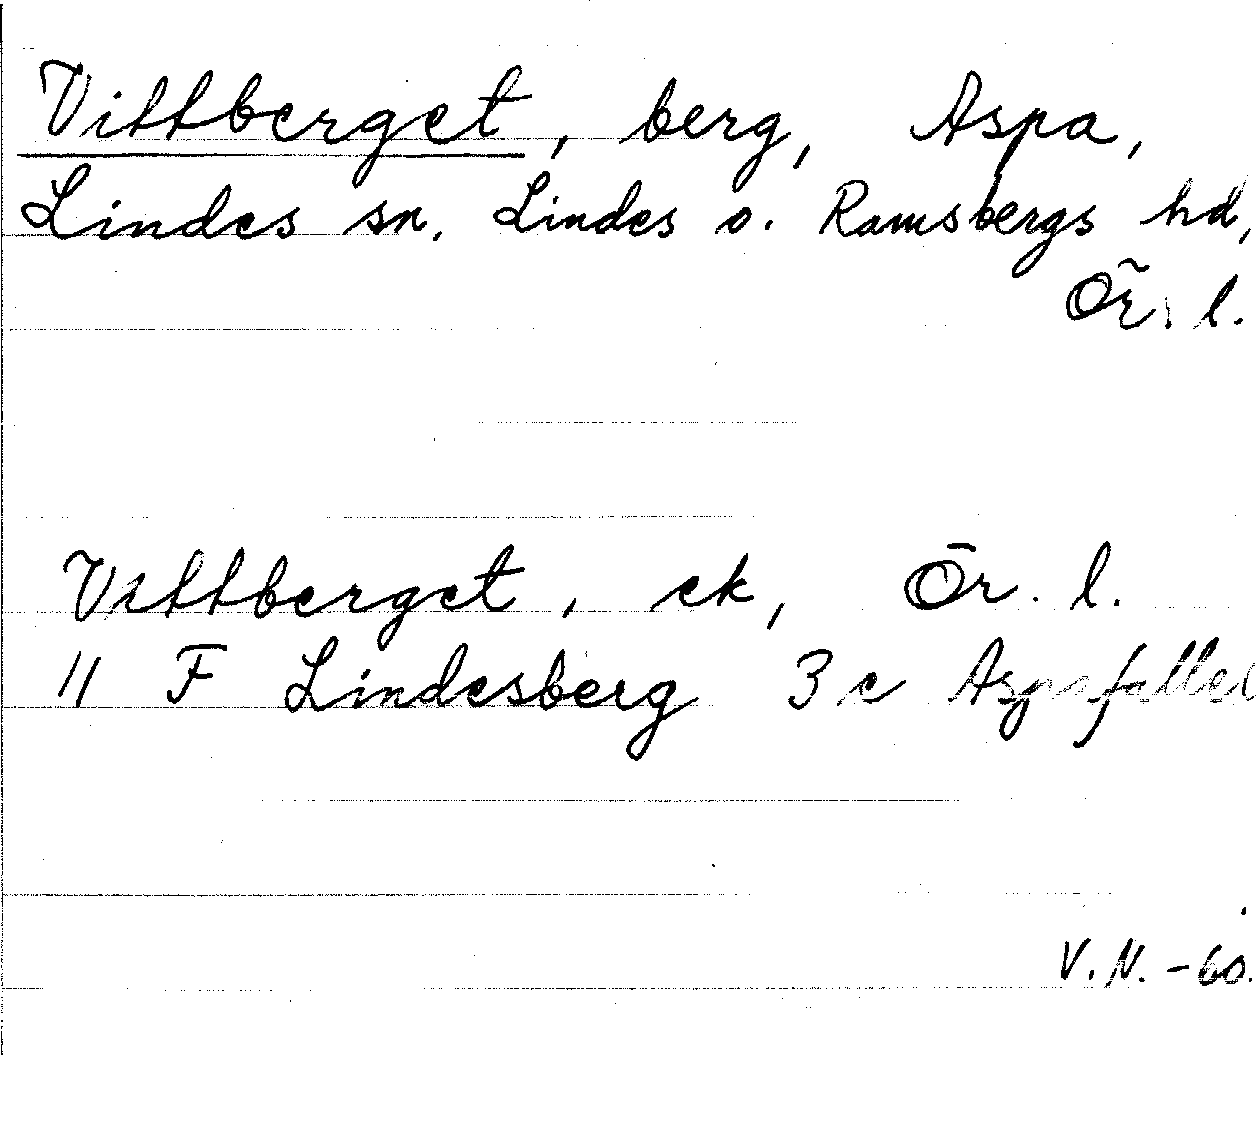 Vittberget, berg, Aspa,
Lindes sn. Lindes o. Ramsbergs hd,
Ör. l.
Vittberget, ek, Ör. l.
11 F Lindesberg 3 c Aspafallet
V.N. -60.